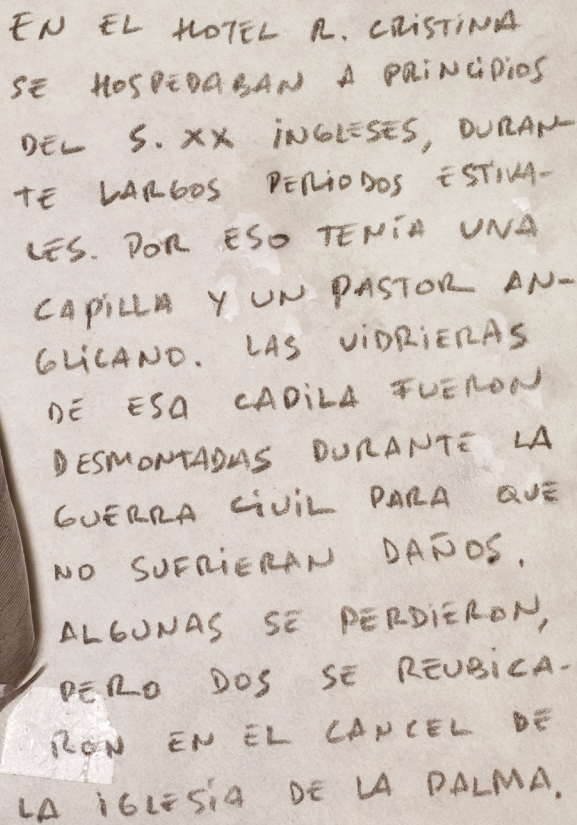 EN EL HOTEL R. CRISTINA
SE HOSPEDABAN A PRINCIPIOS
DEL S. XX INGLESES, DURAN-
TE LARGOS PERIODOS ESTIVA-
LES. POR ESO TENÍA UNA
CAPILLA Y UN PASTOR AN-
GLICANO. LAS VIDRIERAS
DE ESA CAPILA FUERON
DESMONTADAS DURANTE LA
GUERRA CIVIL PARA QUE
NO SUFRIERAN DAÑOS.
ALGUNAS SE PERDIERON,
PERO DOS SE REUBICA-
RON EN EL CANCEL DE
LA IGLESÍA DE LA PALMA.